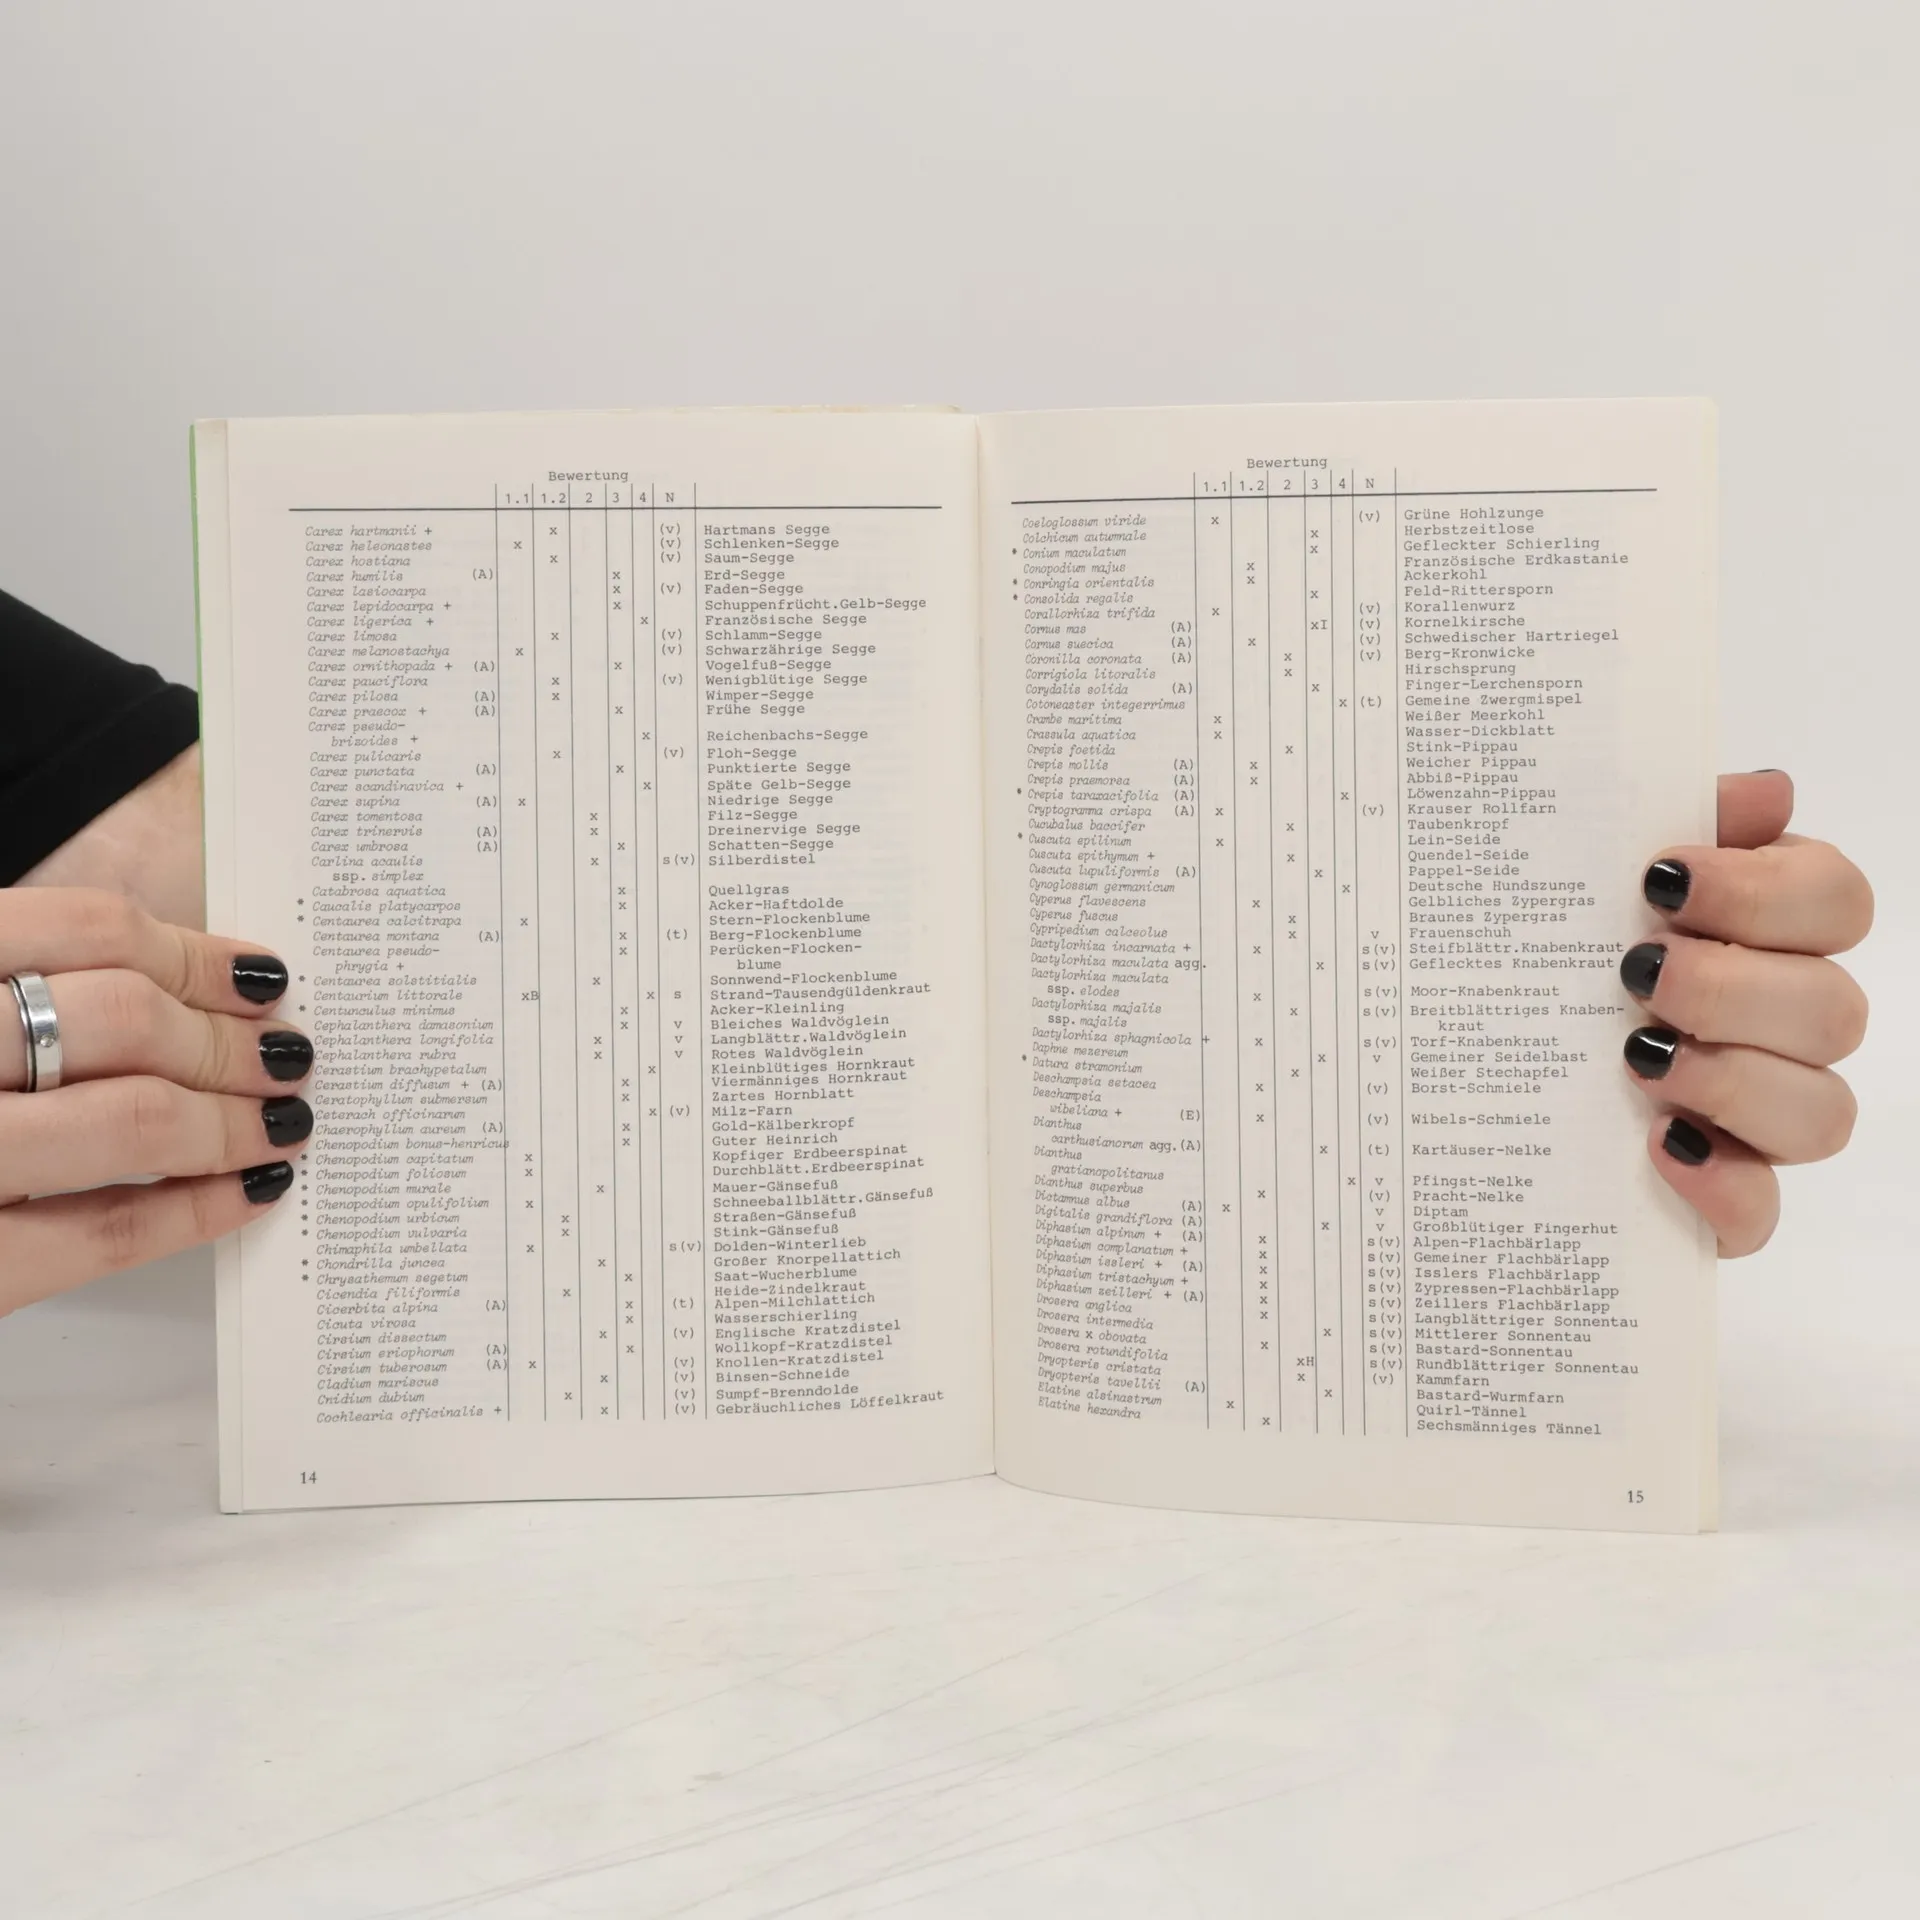 Bewertung
1.1 1.2 2 3 4 N
Carex hartmanii + x (v) Hartmans Segge
Carex heleonastes x (v) Schlenken-Segge
Carex hostiana x (v) Saum-Segge
Carex humilis (A) x Erd-Segge
Carex lasiocarpa x (v) Faden-Segge
Carex lepidocarpa + x Schuppenfrücht.Gelb-Segge
Carex ligerica + x Französische Segge
Carex limosa x (v) Schlamm-Segge
Carex melanostachya x (v) Schwarzährige Segge
Carex ornithopada + (A) x Vogelfuß-Segge
Carex pauciflora x (v) Wenigblütige Segge
Carex pilosa (A) x Wimper-Segge
Carex praecox + (A) x Frühe Segge
Carex pseudo-
brizoides + x Reichenbachs-Segge
Carex pulicaris x (v) Floh-Segge
Carex punctata (A) x Punktierte Segge
Carex scandinavica + x Späte Gelb-Segge
Carex supina (A) x Niedrige Segge
Carex tomentosa x Filz-Segge
Carex trinervis (A) x Dreinervige Segge
Carex umbrosa (A) x Schatten-Segge
Carlina acaulis x s(v) Silberdistel
ssp. simplex
Catabrosa aquatica x Quellgras
* Caucalis platycarpos x Acker-Haftdolde
* Centaurea calcitrapa x Stern-Flockenblume
Centaurea montana (A) x (t) Berg-Flockenblume
Centaurea pseudo- x Perücken-Flocken-
phrygia + blume
* Centaurea solstitialis x Sonnwend-Flockenblume
Centaurium littorale xB x s Strand-Tausendgüldenkraut
* Centunculus minimus x Acker-Kleinling
Cephalanthera damasonium x v Bleiches Waldvöglein
Cephalanthera longifolia x v Langblättr.Waldvöglein
Cephalanthera rubra x v Rotes Waldvöglein
Cerastium brachypetalum x Kleinblütiges Hornkraut
Cerastium diffusum + (A) x Viermänniges Hornkraut
Ceratophyllum submersum x Zartes Hornblatt
Ceterach officinarum x (v) Milz-Farn
Chaerophyllum aureum (A) x Gold-Kälberkropf
Chenopodium bonus-henricus x Guter Heinrich
* Chenopodium capitatum x Kopfiger Erdbeerspinat
* Chenopodium foliosum x Durchblätt.Erdbeerspinat
* Chenopodium murale x Mauer-Gänsefuß
* Chenopodium opulifolium x Schneeballblättr.Gänsefuß
* Chenopodium urbicum x Straßen-Gänsefuß
* Chenopodium vulvaria x Stink-Gänsefuß
Chimaphila umbellata x s(v) Dolden-Winterlieb
* Chondrilla juncea x Großer Knorpellattich
* Chrysathemum segetum x Saat-Wucherblume
Cicendia filiformis x Heide-Zindelkraut
Cicerbita alpina (A) x (t) Alpen-Milchlattich
Cicuta virosa x Wasserschierling
Cirsium dissectum x (v) Englische Kratzdistel
Cirsium eriophorum (A) x Wollkopf-Kratzdistel
Cirsium tuberosum (A) x (v) Knollen-Kratzdistel
Cladium mariscus x (v) Binsen-Schneide
Cnidium dubium x (v) Sumpf-Brenndolde
Cochlearia officinalis + x (v) Gebräuchliches Löffelkraut
14
Bewertung
1.1 1.2 2 3 4 N
Coeloglossum viride x (v) Grüne Hohlzunge
Colchicum autumnale x Herbstzeitlose
* Conium maculatum x Gefleckter Schierling
Conopodium majus x Französische Erdkastanie
* Conringia orientalis x Ackerkohl
* Consolida regalis x Feld-Rittersporn
Corallorhiza trifida x (v) Korallenwurz
Cornus mas (A) xI (v) Kornelkirsche
Cornus suecica (A) x (v) Schwedischer Hartriegel
Coronilla coronata (A) x (v) Berg-Kronwicke
Corrigiola litoralis x Hirschsprung
Corydalis solida (A) x Finger-Lerchensporn
Cotoneaster integerrimus x (t) Gemeine Zwergmispel
Crambe maritima x Weißer Meerkohl
Crassula aquatica x Wasser-Dickblatt
Crepis foetida x Stink-Pippau
Crepis mollis (A) x Weicher Pippau
Crepis praemorsa (A) x Abbiß-Pippau
* Crepis taraxacifolia (A) x Löwenzahn-Pippau
Cryptogramma crispa (A) x (v) Krauser Rollfarn
Cucubalus baccifer x Taubenkropf
* Cuscuta epilinum x Lein-Seide
Cuscuta epithymum + x Quendel-Seide
Cuscuta lupuliformis (A) x Pappel-Seide
Cynoglossum germanicum x Deutsche Hundszunge
Cyperus flavescens x Gelbliches Zypergras
Cyperus fuscus x Braunes Zypergras
Cypripedium calceolus x v Frauenschuh
Dactylorhiza incarnata + x s(v) Steifblättr.Knabenkraut
Dactylorhiza maculata agg. x s(v) Geflecktes Knabenkraut
Dactylorhiza maculata
ssp. elodes x s(v) Moor-Knabenkraut
Dactylorhiza majalis x s(v) Breitblättriges Knaben-
ssp. majalis kraut
Dactylorhiza sphagnicola + x s(v) Torf-Knabenkraut
Daphne mezereum x v Gemeiner Seidelbast
* Datura stramonium x Weißer Stechapfel
Deschampsia setacea x (v) Borst-Schmiele
Deschampsia
wibeliana + (E) x (v) Wibels-Schmiele
Dianthus
carthusianorum agg.(A) x (t) Kartäuser-Nelke
Dianthus
gratianopolitanus x v Pfingst-Nelke
Dianthus superbus x (v) Pracht-Nelke
Dictamnus albus (A) x v Diptam
Digitalis grandiflora (A) x v Großblütiger Fingerhut
Diphasium alpinum + (A) x s(v) Alpen-Flachbärlapp
Diphasium complanatum + x s(v) Gemeiner Flachbärlapp
Diphasium issleri + (A) x s(v) Isslers Flachbärlapp
Diphasium tristachyum + x s(v) Zypressen-Flachbärlapp
Diphasium zeilleri + (A) x s(v) Zeillers Flachbärlapp
Drosera anglica x s(v) Langblättriger Sonnentau
Drosera intermedia x s(v) Mittlerer Sonnentau
Drosera x obovata x s(v) Bastard-Sonnentau
Drosera rotundifolia xH s(v) Rundblättriger Sonnentau
Dryopteris cristata x (v) Kammfarn
Dryopteris tavellii (A) x Bastard-Wurmfarn
Elatine alsinastrum x Quirl-Tännel
Elatine hexandra x Sechsmänniges Tännel
15